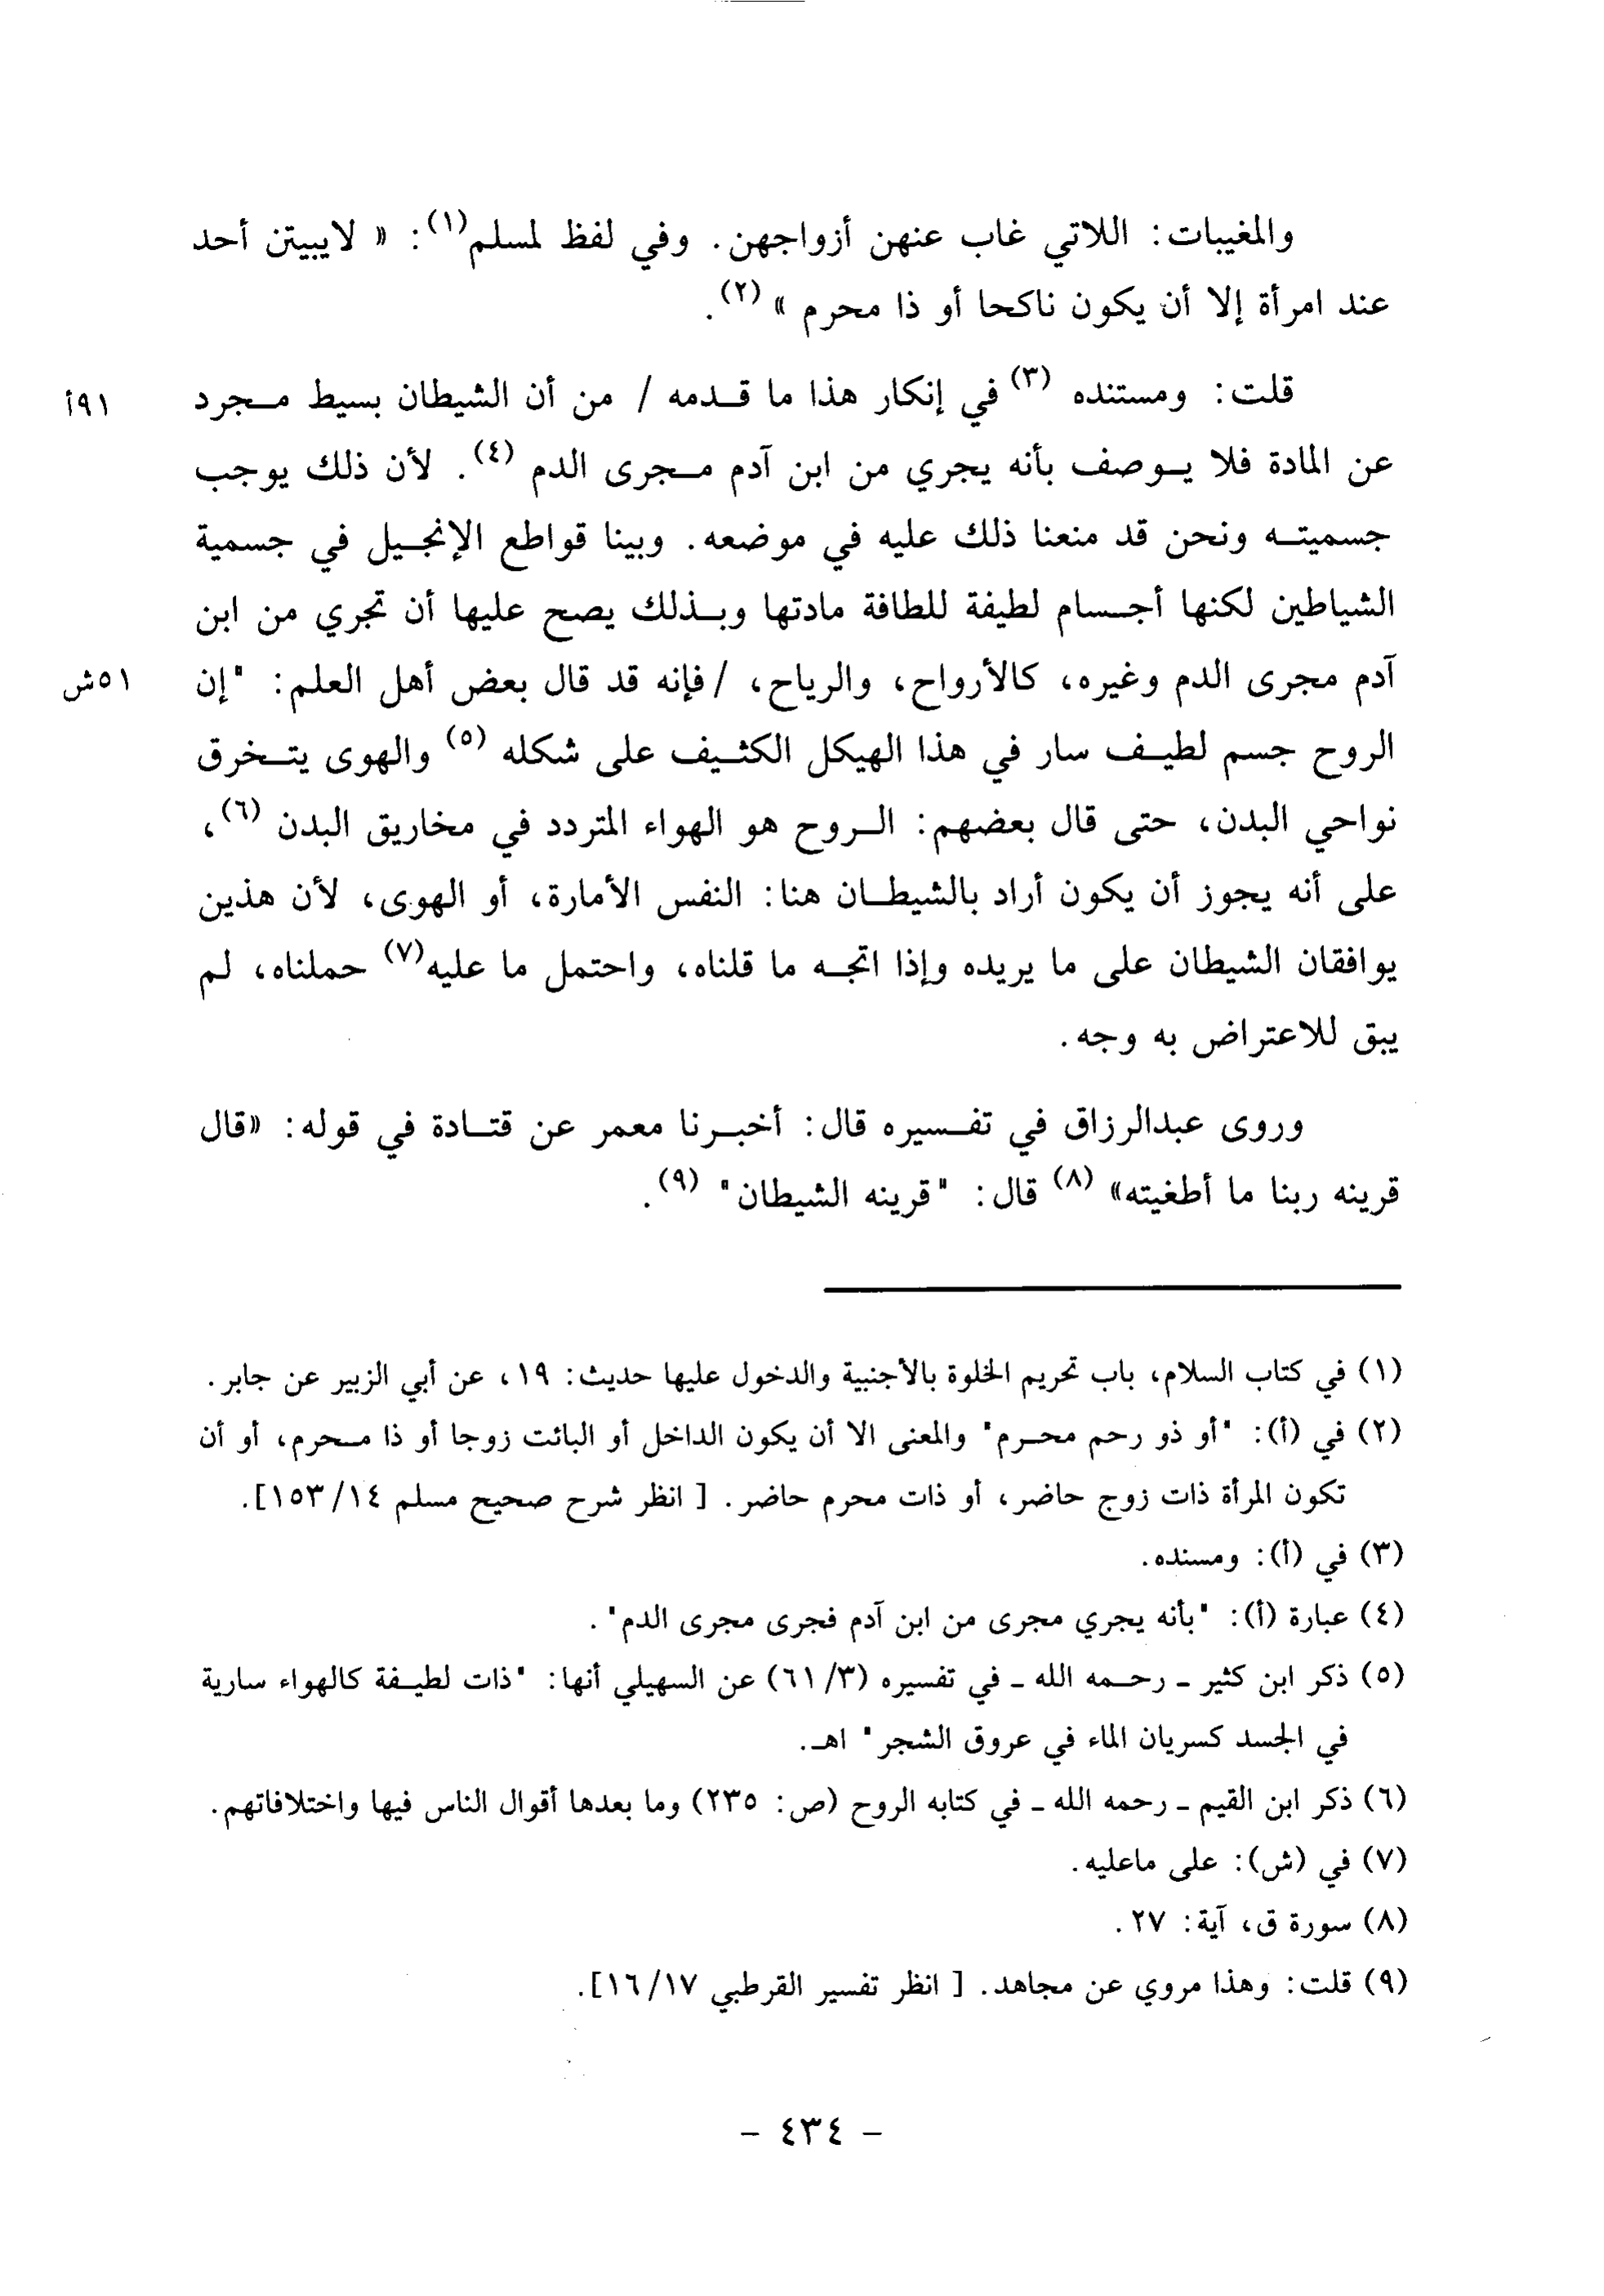 والمغيبات: اللاتي غاب عنهن أزواجهن. وفي لفظ لمسلم(١): « لايبيتن أحد
عند امرأة إلا أن يكون ناكحا أو ذا محرم » (٢).
قلت: ومستنده (٣) في إنكار هذا ما قدمه / من أن الشيطان بسيط مجرد
٩١أ
عن المادة فلا يوصف بأنه يجري من ابن آدم مجرى الدم (٤). لأن ذلك يوجب
جسميته ونحن قد منعنا ذلك عليه في موضعه. وبينا قواطع الإنجيل في جسمية
الشياطين لكنها أجسام لطيفة للطافة مادتها وبذلك يصح عليها أن تجري من ابن
آدم مجرى الدم وغيره، كالأرواح، والرياح، / فإنه قد قال بعض أهل العلم: "إن
٥١ش
الروح جسم لطيف سار في هذا الهيكل الكثيف على شكله (٥) والهوى يتخرق
نواحي البدن، حتى قال بعضهم: الروح هو الهواء المتردد في مخاريق البدن (٦)،
على أنه يجوز أن يكون أراد بالشيطان هنا: النفس الأمارة، أو الهوى، لأن هذين
يوافقان الشيطان على ما يريده وإذا اتجه ما قلناه، واحتمل ما عليه(٧) حملناه، لم
يبق للاعتراض به وجه.
وروى عبدالرزاق في تفسيره قال: أخبرنا معمر عن قتادة في قوله: «قال
قرينه ربنا ما أطغيته» (٨) قال: "قرينه الشيطان" (٩).
(١) في كتاب السلام، باب تحريم الخلوة بالأجنبية والدخول عليها حديث: ١٩، عن أبي الزبير عن جابر.
(٢) في (أ): "أو ذو رحم محرم" والمعنى الا أن يكون الداخل أو البائت زوجا أو ذا محرم، أو أن
تكون المرأة ذات زوج حاضر، أو ذات محرم حاضر. [ انظر شرح صحيح مسلم ١٤/ ١٥٣].
(٣) في (أ): ومسنده.
(٤) عبارة (أ): "بأنه يجري مجرى من ابن آدم فجرى مجرى الدم".
(٥) ذكر ابن كثير ـ رحمه الله ـ في تفسيره (٣/ ٦١) عن السهيلي أنها: "ذات لطيفة كالهواء سارية
في الجسد كسريان الماء في عروق الشجر" اهـ.
(٦) ذكر ابن القيم ـ رحمه الله ـ في كتابه الروح (ص: ٢٣٥) وما بعدها أقوال الناس فيها واختلافاتهم.
(٧) في (ش): على ماعليه.
(٨) سورة ق، آية: ٢٧.
(٩) قلت: وهذا مروي عن مجاهد. [ انظر تفسير القرطبي ١٧/ ١٦].
- ٤٣٤ -